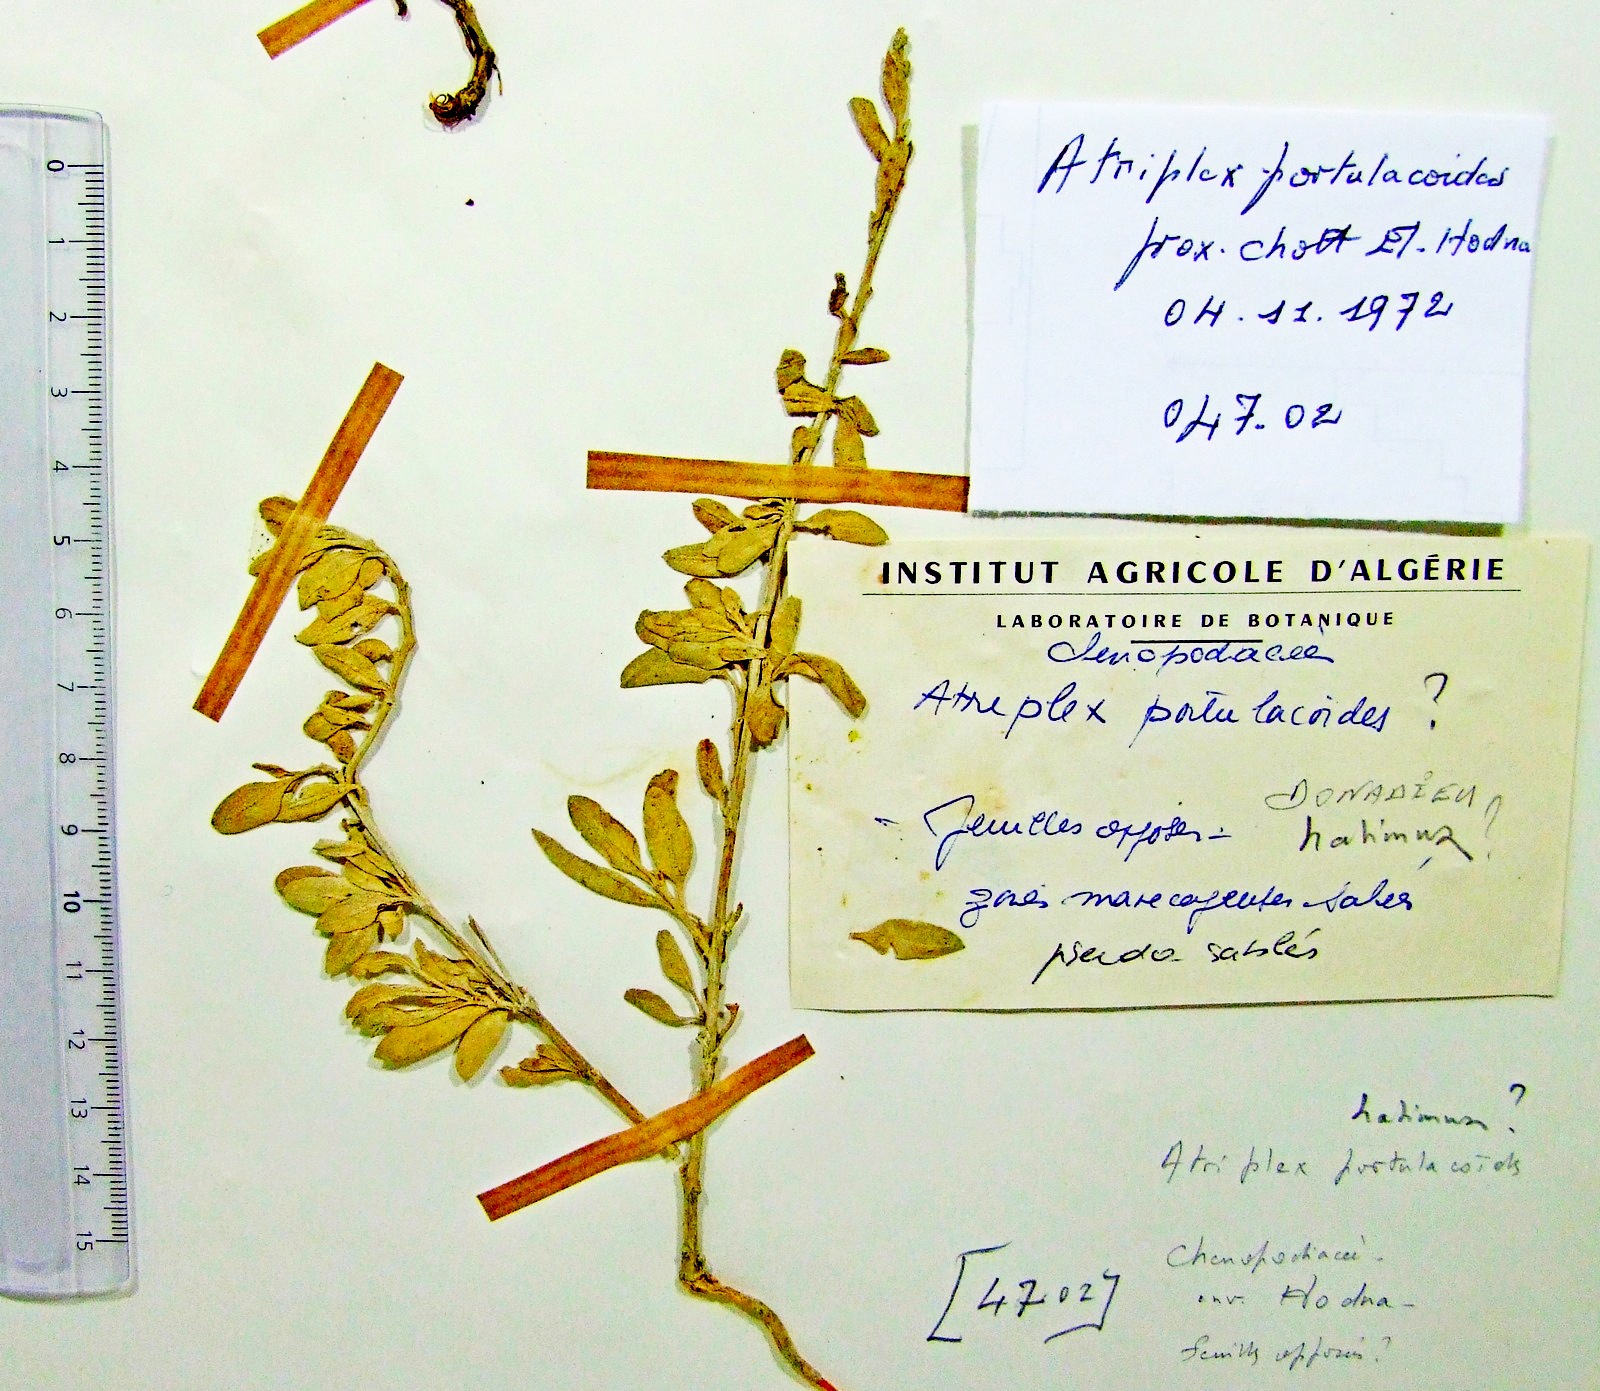 0
1
2
3
4
5
6
7
8
9
10
11
12
13
14
15
Atriplex portulacoides
prox. chott El. Hodna
04.11.1972
047.02
INSTITUT AGRICOLE D'ALGÉRIE
LABORATOIRE DE BOTANIQUE
Chenopodiacées
Atriplex portulacoides ?
DONADIEU
- feuilles opposées - halimus ?
zones marecageuses salées
pseudo-sablés
halimus ?
Atriplex portulacoides
Chenopodiacée -
env. Hodna -
[47 02]
feuilles opposées ?